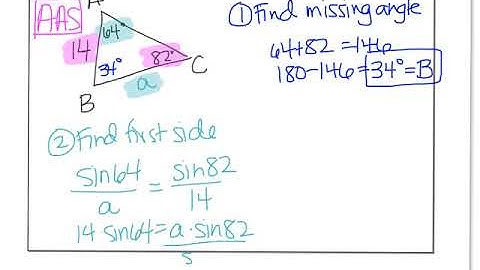 A
AAS
64°
14
82°
34°
C
a
B
① Find missing angle
64+82 = 146
180-146 = 34° = B
② Find first side
sin64 / a = sin82 / 14
14 sin64 = a · sin82
s